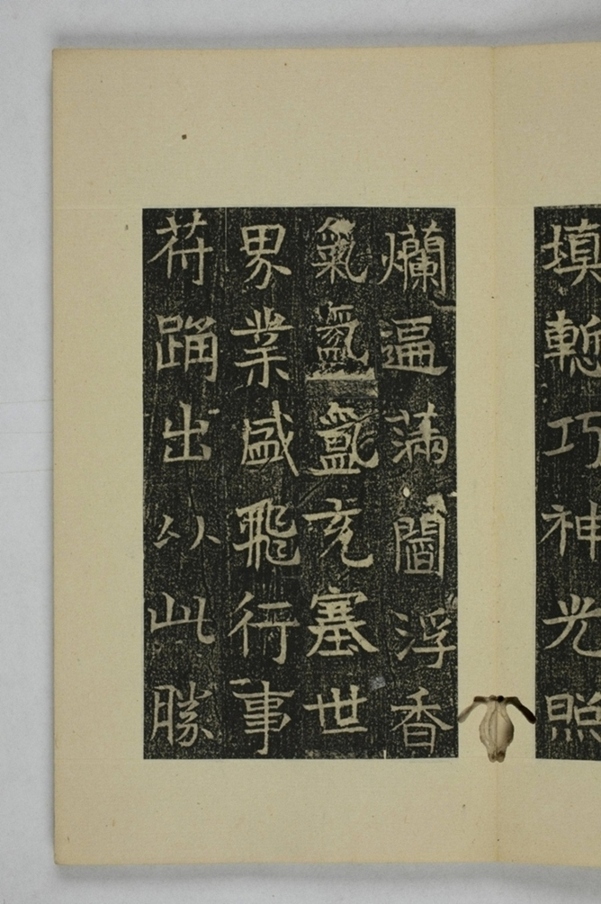 填塹巧神光照
爛遍滿閻浮香
氣氤氳充塞世
界業盛飛行事
苻踊出以此勝